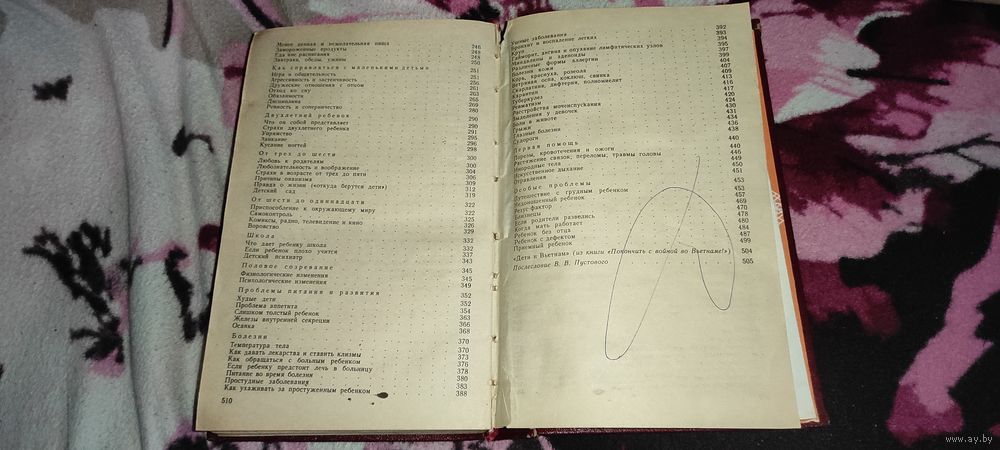 Менее ценная и нежелательная пища 246
Замороженные продукты 248
Еда вне расписания 248
Завтраки, обеды, ужины 250
Как справляться с маленькими детьми 251
Игра и общительность 251
Агрессивность и застенчивость 256
Дружеские отношения с отцом 261
Отход ко сну 263
Обязанности 265
Дисциплина 269
Ревность и соперничество 280
Двухлетний ребенок 290
Что он собой представляет 290
Страхи двухлетнего ребенка 291
Упрямство 295
Заикание 296
Кусание ногтей 298
От трех до шести 300
Любовь к родителям 300
Любознательность и воображение 304
Страхи в возрасте от трех до пяти 306
Причины онанизма 309
Правда о жизни (откуда берутся дети) 312
Детский сад 319
От шести до одиннадцати 322
Приспособление к окружающему миру 322
Самоконтроль 325
Комиксы, радио, телевидение и кино 326
Воровство 329
Школа 332
Что дает ребенку школа 332
Если ребенок плохо учится 337
Детский психиатр 343
Половое созревание 345
Физиологические изменения 345
Психологические изменения 349
Проблемы питания и развития 352
Худые дети 352
Проблема аппетита 354
Слишком толстый ребенок 363
Железы внутренней секреции 366
Осанка 368
Болезни 370
Температура тела 370
Как давать лекарства и ставить клизмы 373
Как обращаться с больным ребенком 376
Если ребенку предстоит лечь в больницу 378
Питание во время болезни 380
Простудные заболевания 383
Как ухаживать за простуженным ребенком 388
510
Ушные заболевания 392
Бронхит и воспаление легких 393
Круп 394
Гайморит, ангина и опухание лимфатических узлов 395
Миндалины и аденоиды 397
Различные формы аллергии 399
Болезни кожи 404
Корь, краснуха, розеола 407
Ветряная оспа, коклюш, свинка 409
Скарлатина, дифтерия, полиомиелит 413
Карантин 416
Туберкулез 417
Ревматизм 420
Расстройства мочеиспускания 424
Выделения у девочек 430
Боли в животе 431
Грыжи 434
Глазные болезни 436
Судороги 438
Первая помощь 440
Порезы, кровотечения и ожоги 440
Растяжение связок; переломы; травмы головы 446
Инородные тела 449
Искусственное дыхание 450
Отравления 451
Особые проблемы 453
Путешествие с грудным ребенком 453
Недоношенный ребенок 457
Резус-фактор 469
Близнецы 470
Если родители развелись 478
Когда мать работает 480
Ребенок без отца 484
Ребенок с дефектом 487
Приемный ребенок 499
«Дети и Вьетнам» (из книги «Покончить с войной во Вьетнаме!») 504
Послесловие В. В. Пустового 505
www.ay.by